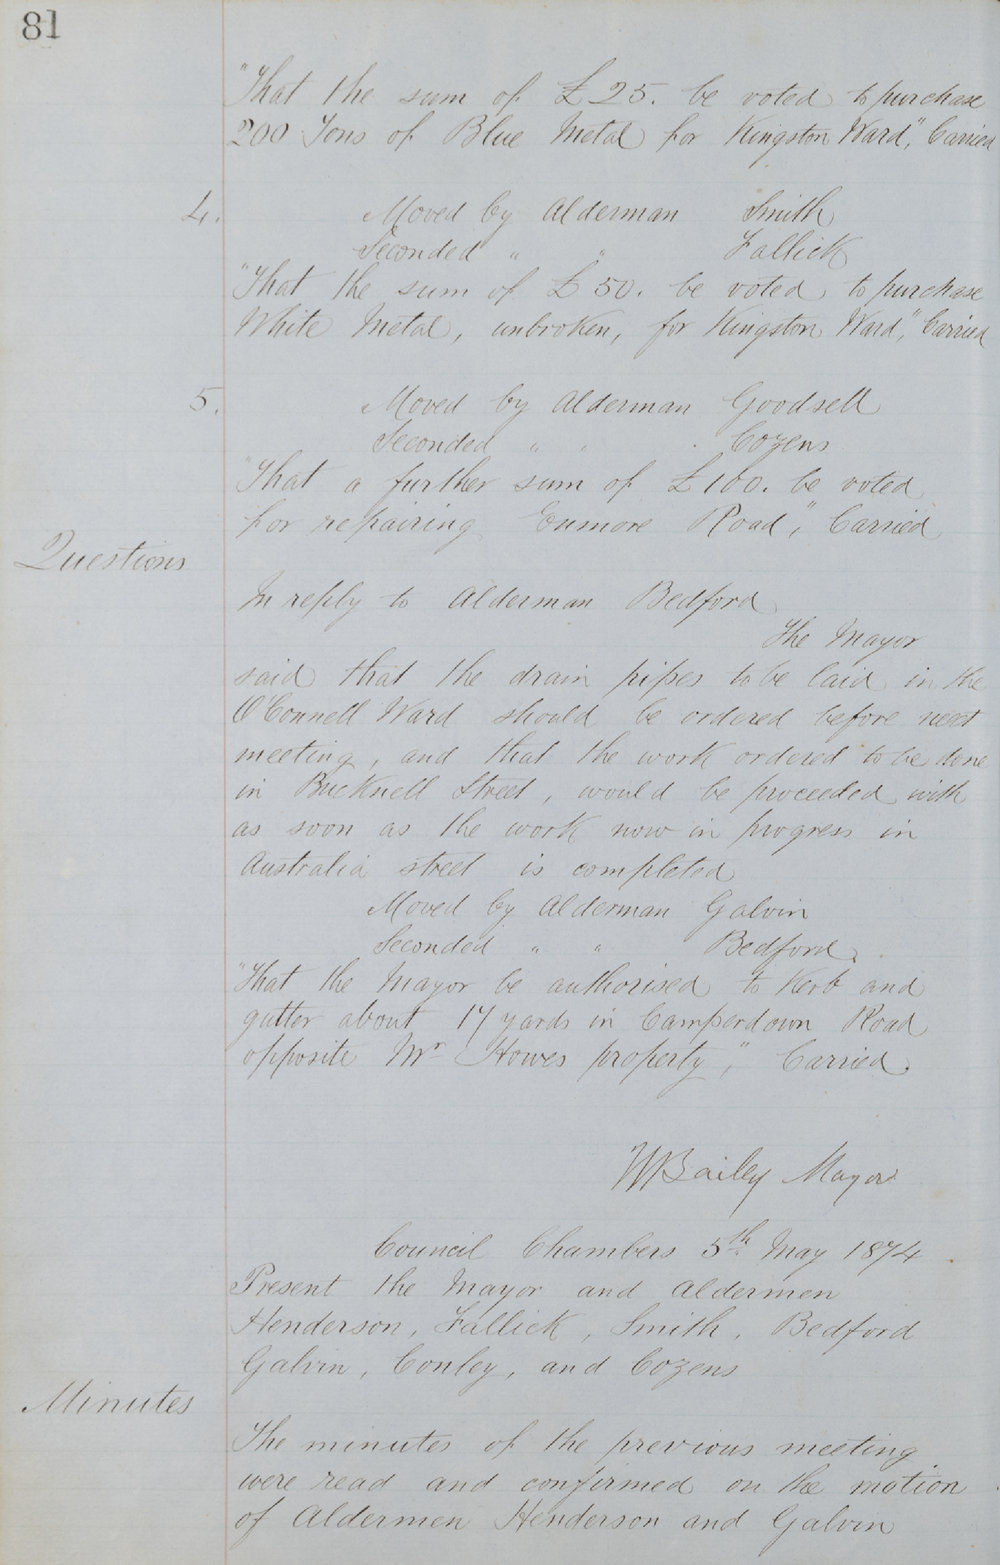 81
"That the sum of £25. be voted to purchase
200 Tons of Blue Metal for Kingston Ward," Carried
4. Moved by Alderman Smith
Seconded " " Fallick
"That the sum of £50. be voted to purchase
White Metal, unbroken, for Kingston Ward," Carried
5. Moved by Alderman Goodsell
Seconded " " Cozens
"That a further sum of £100. be voted
for repairing Enmore Road," Carried
Questions
In reply to Alderman Bedford
The Mayor
said that the drain pipes to be laid in the
O'Connell Ward should be ordered before next
meeting, and that the work ordered to be done
in Bucknell Street, would be proceeded with
as soon as the work now in progress in
Australia street is completed
Moved by Alderman Galvin
Seconded " " Bedford.
"That the Mayor be authorised to Kerb and
gutter about 17 yards in Camperdown Road
opposite Mr Howes property," Carried.
WBailey Mayor
Council Chambers 5th May 1874
Present the Mayor and Aldermen
Henderson, Fallick, Smith, Bedford
Galvin, Conley, and Cozens
Minutes
The minutes of the previous meeting
were read and confirmed on the motion
of Aldermen Henderson and Galvin